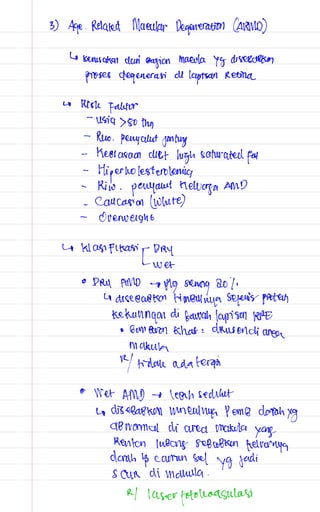 3) Age Related Macular Degeneration (ARMD)
↳ kerusakan dari bagian macula yg disebabkan
proses degenerasi di lapisan Retina
↳ Risk Faktor
- usia > 50 thn
- Riw. penyakit jantung
- Kebiasaan diet high saturated fat
- Hiperkolesterolemia
- Riw. penyakit keluarga AMD
- Caucasian (White)
- Overweight
↳ Klasifikasi DRY
WET
• DRY AMD → plg sering 80%
↳ disebabkan timbulnya protein
kekuningan di bawah lapisan RPE
• Gambaran khas : drusen di area
makula
R/ tidak ada terapi
• Wet AMD → lebih sedikit
↳ disebabkan munculnya Pemb darah yg
abnormal di area makula yang
Rentan sebabkan keluarnya
darah & cairan yg jadi
scar di makula.
R/ laser fotokoagulasi